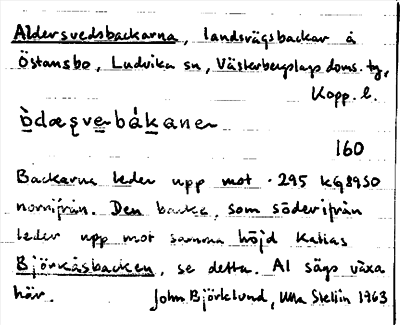 Aldersvedsbackarna, landsvägsbackar å
Östansbo, Ludvika sn, Västerbergslags doms. tg,
Kopp. l.
òdæʂve-bákane-
160
Backarna leder upp mot ·295 kg8950
norrifrån. Den backe, som söderifrån
leder upp mot samma höjd kallas
Björkåsbacken, se detta. Al sägs växa
här. John Björklund, Ulla Stellin 1963